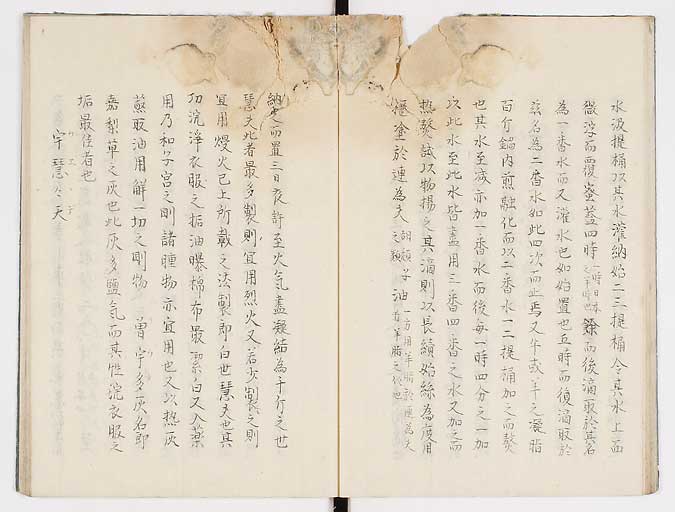 水汲提桶以其水灌納始二三提桶令其水上面
微浮而覆蚕蓋四時而後滴取於其名
為一番水而又灌水也如始置也五時而後滴取於
茲名為二番水如此四次而止焉又牛或羊之凝脂
百斤鍋内煎融化而以二番水一二提桶加之而熬
也其水至减亦加一番水而後每一時四分之一加
以此水至此水皆盡用三番四番之水又加之而
热熬試以物揚之其滴則以長續如絲為度用
塗於連為夫子油
納之而置三日夜許至火氣盡凝結為千斤之世
慧夫此者最多製則宜用烈火又若少製之則
宜用熳火已上所載之法製即白世慧夫也其
功浣淨衣服之垢油曝棉布最潔白又入薬
用乃和子宮之剛諸腫物亦宜用也又以热灰
蒸取油用解一切之剛物 曽宇多灰名即
嘉梨草之灰也此灰多鹽気而其性浣衣服之
垢最佳者也
宇慧尓天